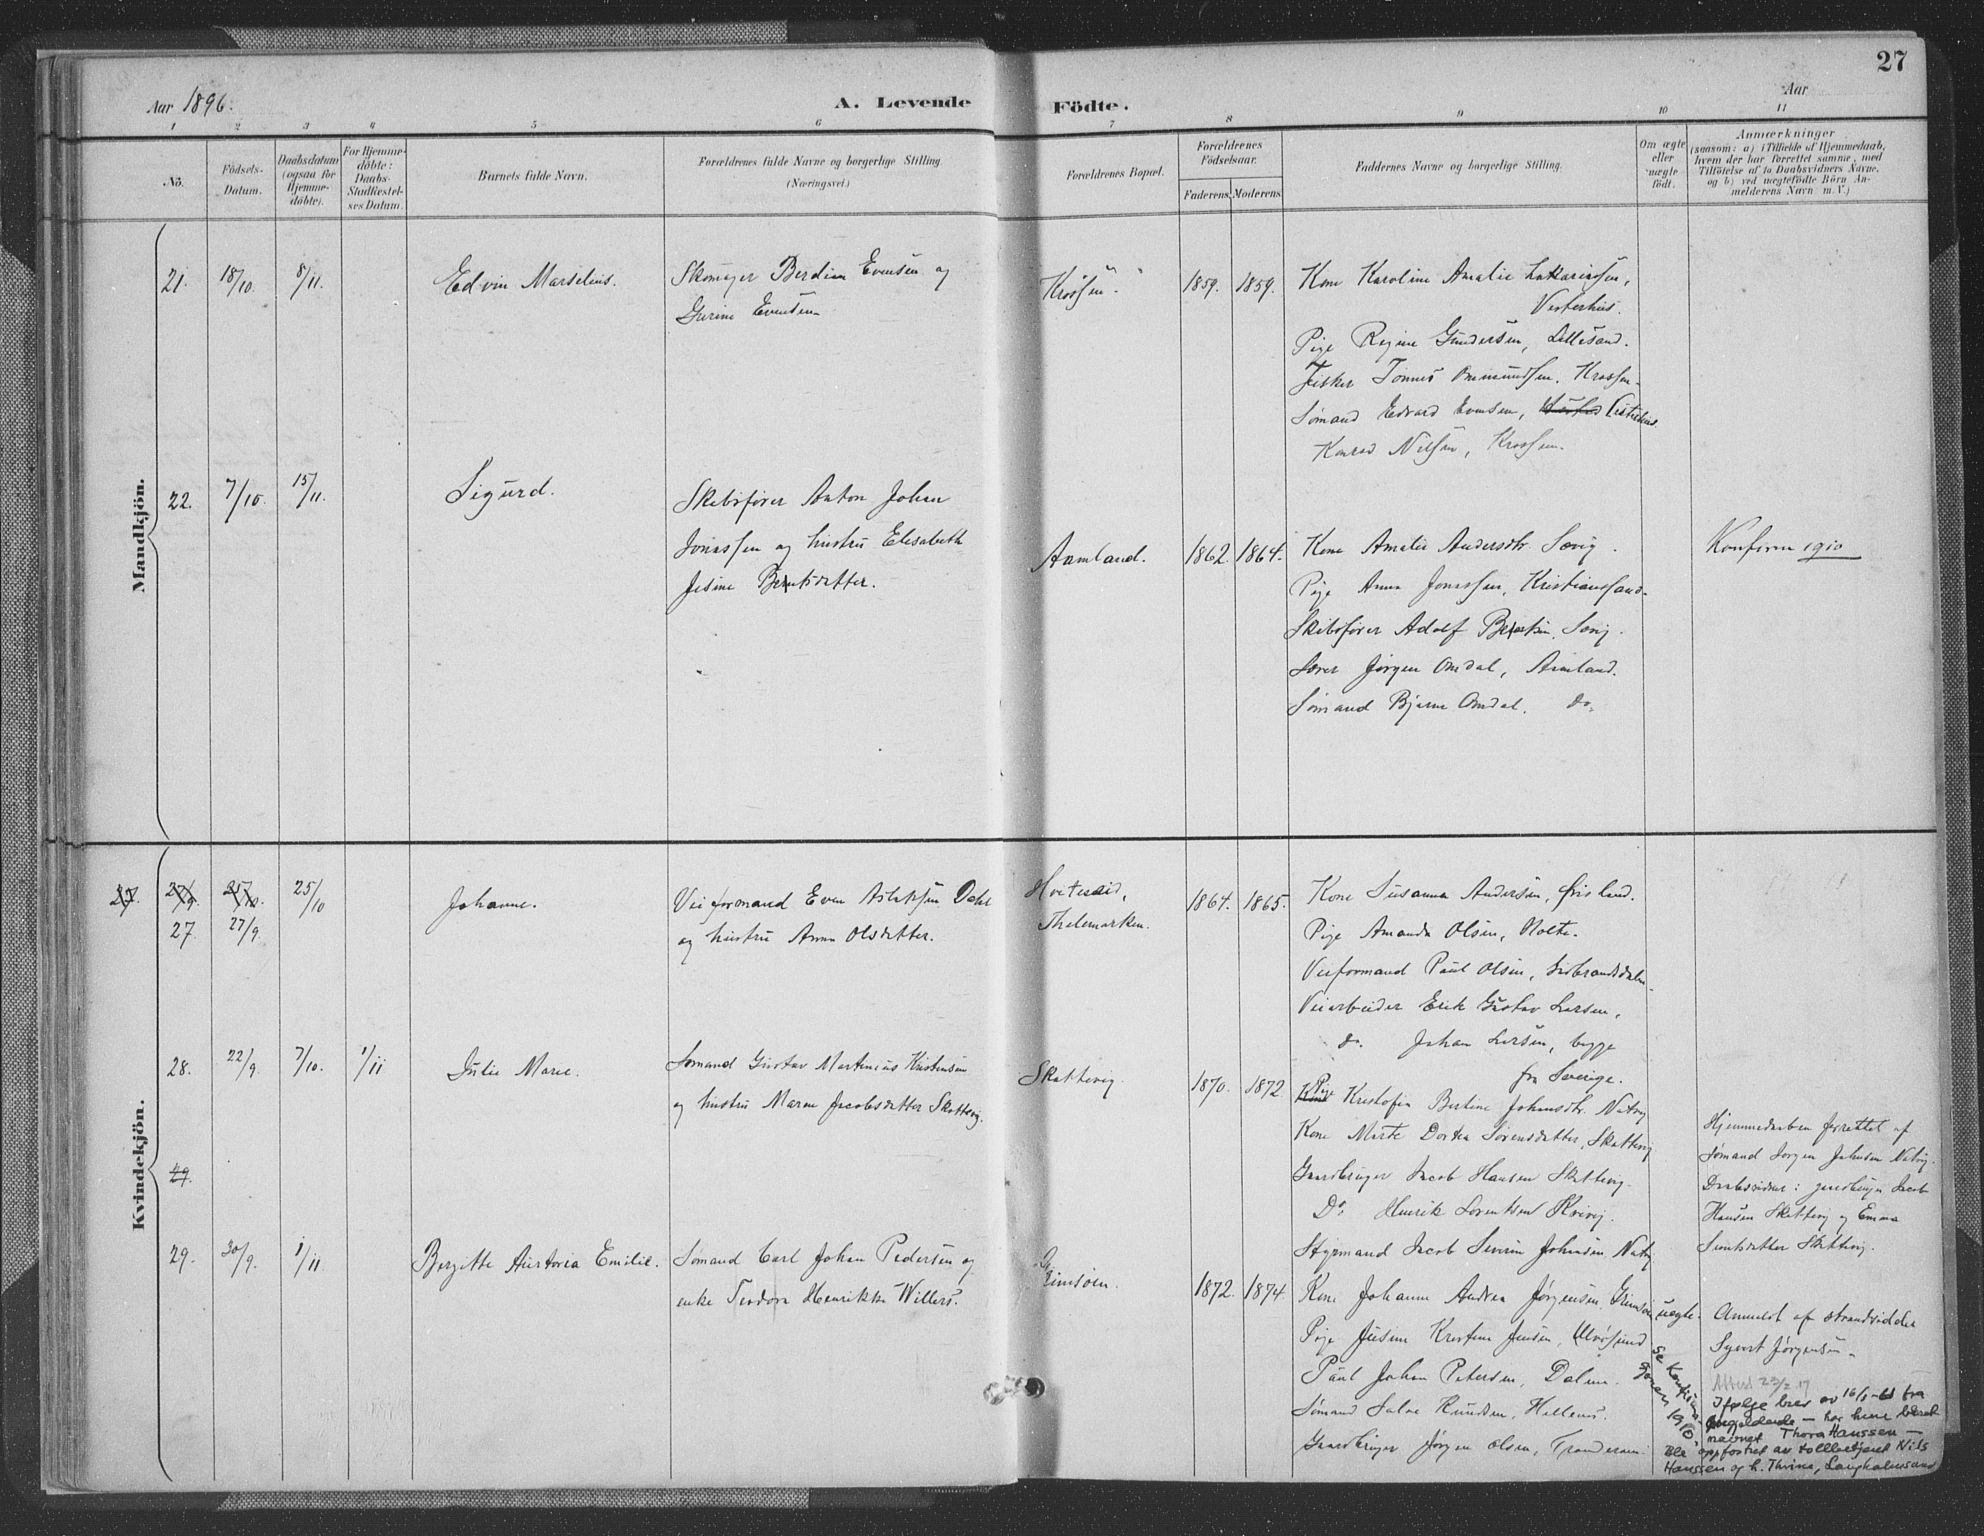 27
Aar 1896.
A. Levende Födte.
Aar
1 2 3 4 5 6 7 8 9 10 11
No.
Födsels-
Datum.
Daabsdatum
(ogsaa for
Hjemme-
døbte).
For Hjemme-
döbte:
Daabs-
Stadfestel-
ses Datum.
Barnets fulde Navn.
Forældrenes fulde Navne og borgerlige Stilling
(Næringsvei.)
Forældrenes Bopæl.
Forældrenes
Födselsaar.
Faderens Moderens
Faddernes Navne og borgerlige Stilling.
Om ægte
eller
uægte
födt.
Anmærkninger
(saasom: a) i Tilfælde af Hjemmedaab,
hvem der har forrettet samme, med
Tilföielse af to Daabsvidners Navne,
og b) ved uægtefödte Börn An-
melderens Navn m. V.)
Mandkjön.
21. 18/10. 8/11. Edvin Marselius.
Skomager Berdin Evensen og
Gurine Evensen
Krossen. 1859. 1859.
Kone Karoline Amalie Zakkariassen,
Vesterhus.
Pige Regine Gundersen, Lillesand.
Fisker Tønnes Ommundsen. Krossen
Sømand Edvard Evensen,
Konrad Nilsen, Krossen.
22. 7/10. 15/11. Sigurd.
Skibsfører Anton Johan
Jonassen og hustru Elisabeth
Jesine Berntsdatter.
Aamland. 1862. 1864.
Kone Amalie Andersdtr. Sævig.
Pige Anna Jonassen, Kristianssand
Skibsfører Adolf Berntsen, Sævig.
Lærer Jørgen Omdal, Aamland.
Sømand Bjarne Omdal. do.
Konfirm 1910
Kvindekjön.
27. 27/9. 25/10
27 27/9. 25/10 Johanne.
Veiformand Even Aslaksen Dahl
og hustru Anna Olsdatter.
Hviteseid,
Thelemarken.
1864. 1865.
Kone Susanna Andersen, Frisland.
Pige Amanda Olsen, Holte.
Veiformand Paul Olsen, Gudbrandsdalen
Veiarbeider Erik Gustav Larsen,
do. Johan Larsen, begge
fra Sverige.
28. 22/9. 7/10. 1/11 Julie Marie.
Sømand Gustav Martinius Kristensen
og hustru Maren Jacobsdatter Skottevig.
Skottevig. 1870. 1872
Pige Kristofia Bertine Johansdtr. Natvig
Kone Marte Dortea Sørensdatter, Skottevig
Gaardbruger Jacob Hansen Skottevig.
Do. Henrik Lorentsen Kvivig.
Styrmand Jacob Severin Johnsen Natvig
Hjemmedaaben forrettet af
Sømand Jørgen Johnsen Natvig.
Daabsvidner: gaardbruger Jacob
Hansen Skottevig og Emma
Skottevig.
29.
29. 30/9. 1/11. Birgitte Austoria Emilie.
Sømand Carl Johan Pedersen og
enke Teodora Henrikke Willers.
Grimsøen. 1872. 1874.
Kone Johanne Andrea Jørgensen, Grimsøen uægte.
Pige Jusine Kristine Jensen, Ulvøsund
Paul Johan Petersen, Dalene.
Sømand Salve Knudsen, Hellens.
Gaardbruger Jørgen Olsen,
Anmeldt af strandsidder
Syvert Jørgensen
Attest 23/2 17
Se Konfirma-
sjonen 1910
Ifølge brev av 16/1-61 fra
vedkommende – har hun båret
navnet Thora Hanssen –
Ble oppfostret av tollbetjent Nils
Hanssen og h. Thrine, Langholmssund